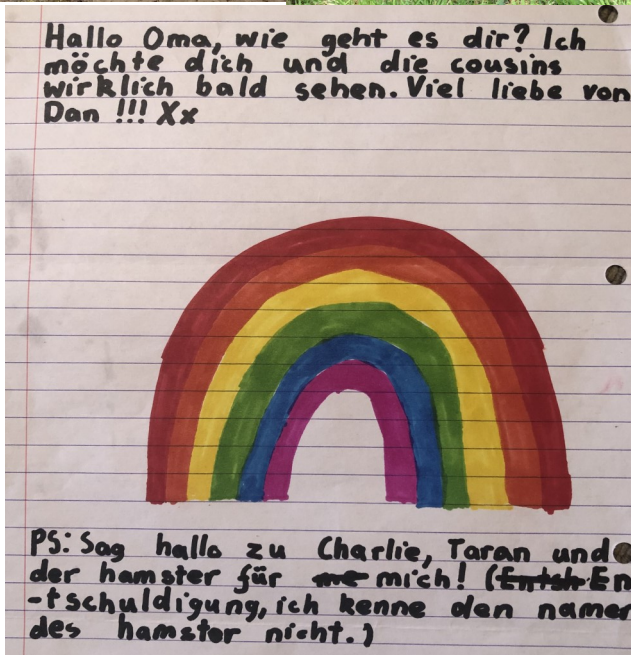 Hallo Oma, wie geht es dir? Ich
möchte dich und die cousins
wirklich bald sehen. Viel liebe von
Dan !!! Xx
PS: Sag hallo zu Charlie, Taran und
der hamster für me mich! (Entsh En
-tschuldigung, ich kenne den namen
des hamster nicht.)